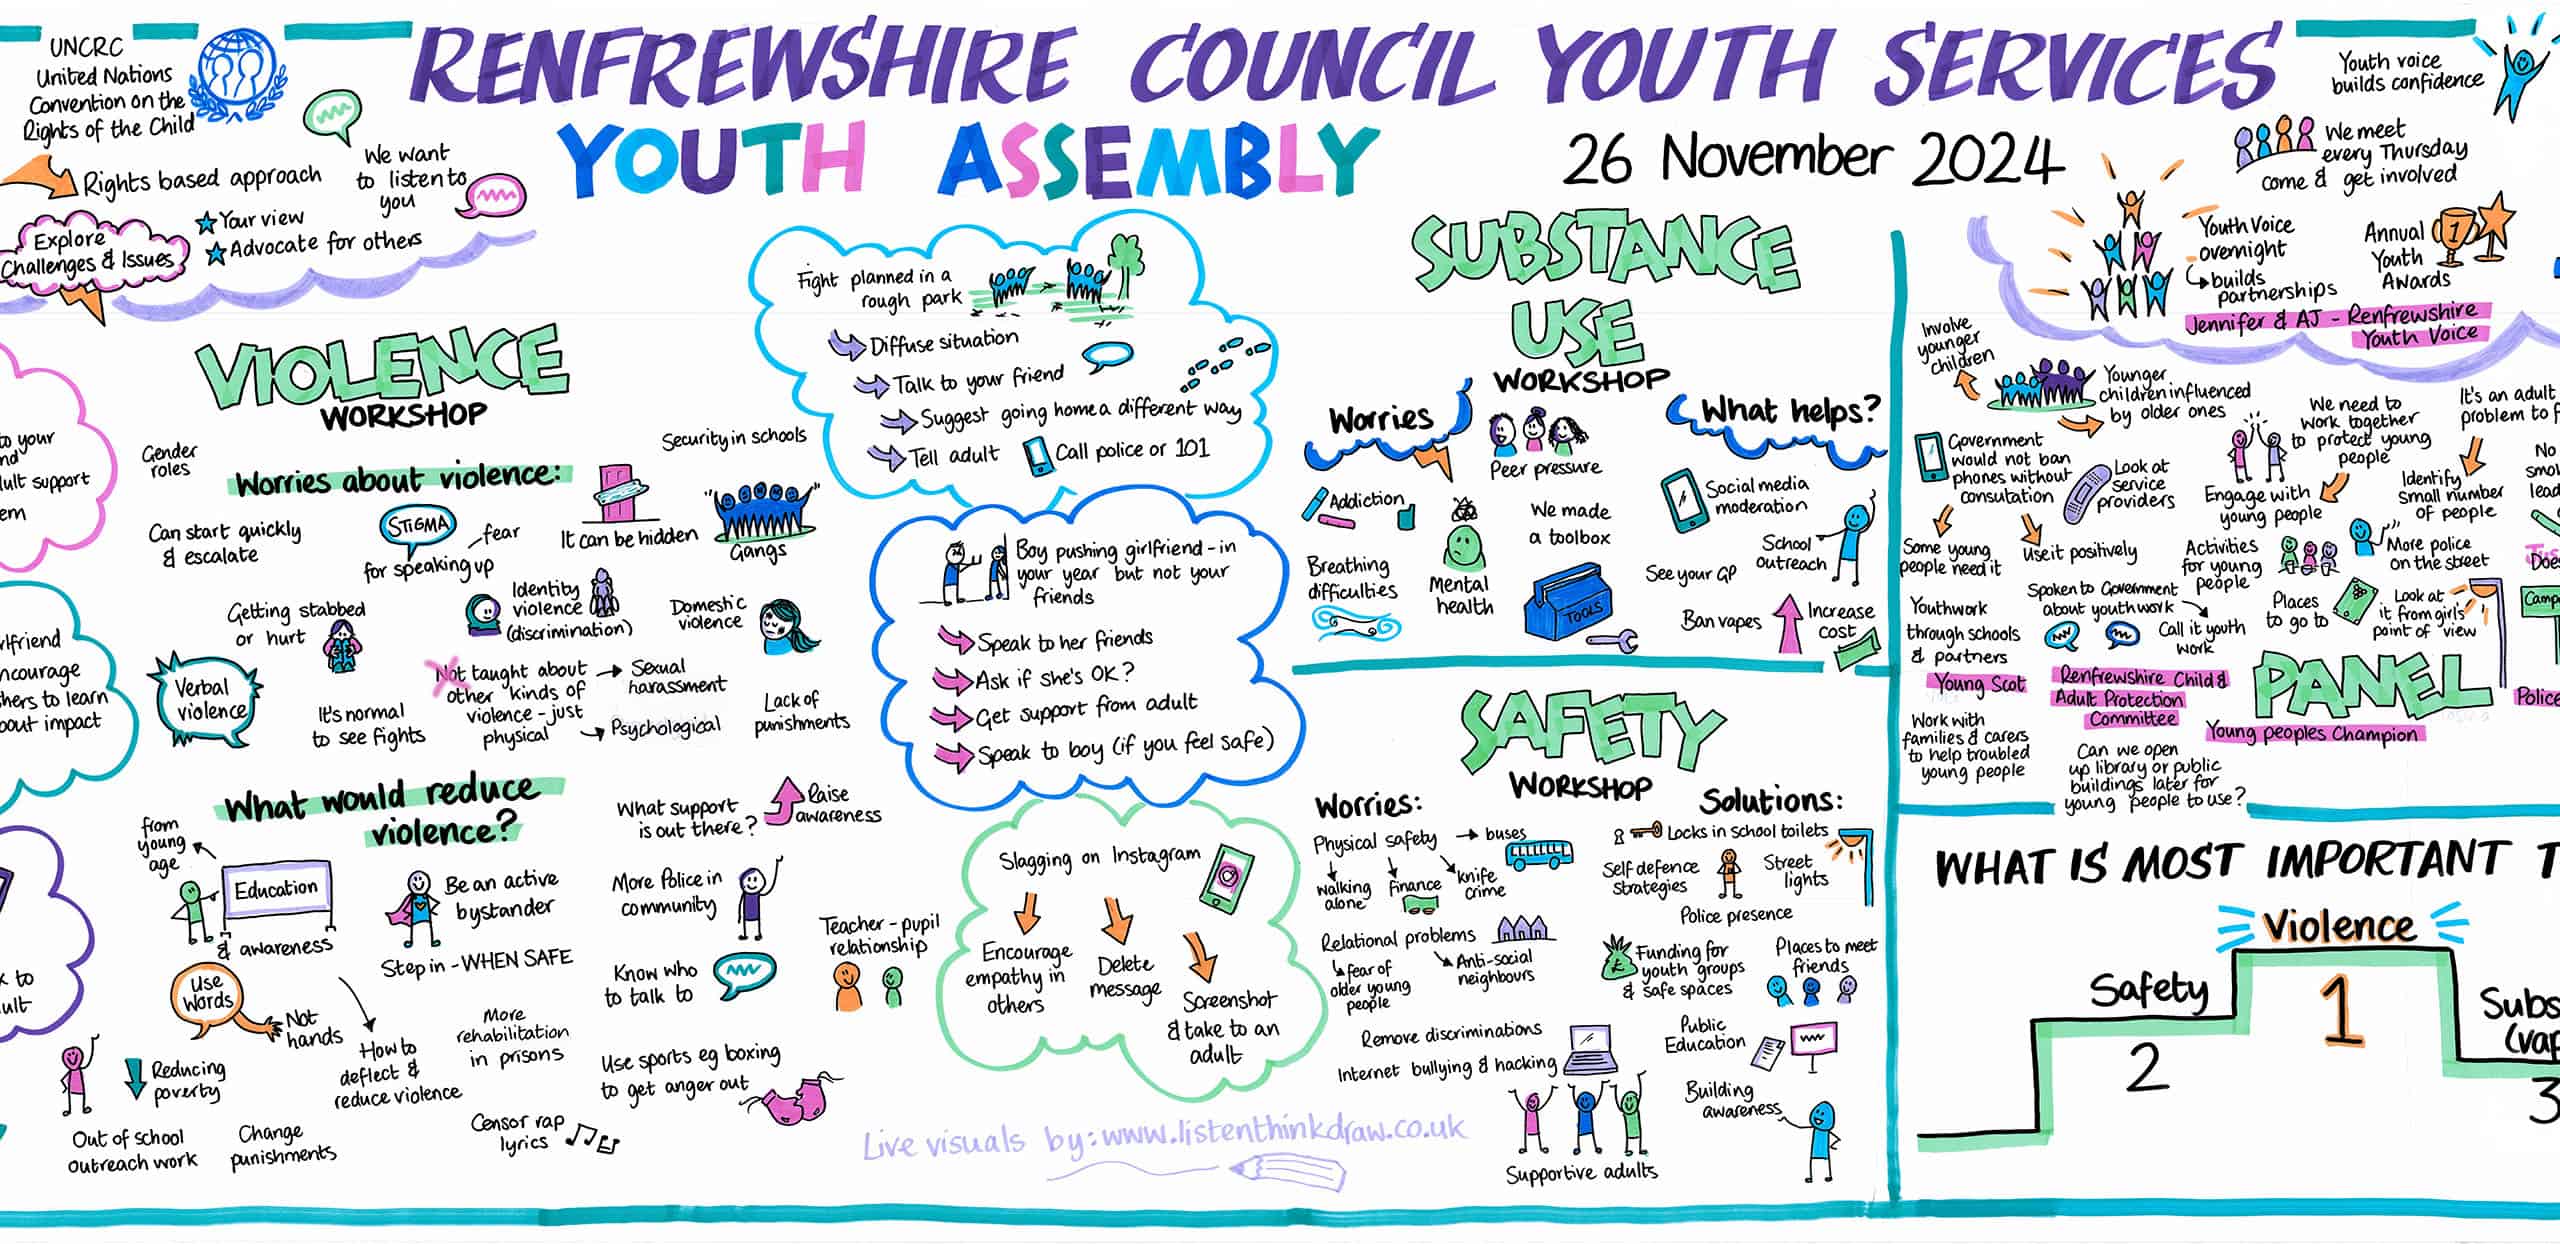 RENFREWSHIRE COUNCIL YOUTH SERVICES
YOUTH ASSEMBLY
26 November 2024
UNCRC
United Nations
Convention on the
Rights of the Child
Rights based approach
We want
to listen to
you
Explore
Challenges & Issues
Your view
Advocate for others
to your
ult support
em
rlfriend
ncourage
hers to learn
bout impact
k to
ult
VIOLENCE
WORKSHOP
Gender
roles
Security in schools
Worries about violence:
Can start quickly
& escalate
STIGMA
fear
for speaking up
It can be hidden
Gangs
Getting stabbed
or hurt
Identity
violence
(discrimination)
Domestic
violence
Verbal
violence
It's normal
to see fights
Not taught about
other kinds of
violence - just
physical
Sexual
harassment
Psychological
Lack of
punishments
What would reduce
violence?
from
young
age
Education
& awareness
Be an active
bystander
Step in - WHEN SAFE
What support
is out there?
Raise
awareness
More Police in
community
Teacher - pupil
relationship
Know who
to talk to
Use
Words
Not
hands
How to
deflect &
reduce violence
More
rehabilitation
in prisons
Reducing
poverty
Use sports eg boxing
to get anger out
Out of school
outreach work
Change
punishments
Censor rap
lyrics
Fight planned in a
rough park
Diffuse situation
Talk to your friend
Suggest going home a different way
Tell adult
Call police or 101
Boy pushing girlfriend - in
your year but not your
friends
Speak to her friends
Ask if she's OK?
Get support from adult
Speak to boy (if you feel safe)
Slagging on Instagram
Encourage
empathy in
others
Delete
message
Screenshot
& take to an
adult
Live visuals by: www.listenthinkdraw.co.uk
SUBSTANCE
USE
WORKSHOP
Worries
Peer pressure
What helps?
Addiction
Breathing
difficulties
Mental
health
We made
a toolbox
TOOLS
Social media
moderation
School
outreach
See your GP
Ban vapes
Increase
cost
SAFETY
WORKSHOP
Worries:
Physical safety
buses
walking
alone
Finance
knife
crime
Relational problems
fear of
older young
people
Anti-social
neighbours
Remove discriminations
Internet bullying & hacking
Supportive adults
Solutions:
Locks in school toilets
Self defence
strategies
Street
lights
Police presence
£
Funding for
youth groups
& safe spaces
Places to meet
friends
Public
Education
Building
awareness
Youth voice
builds confidence
We meet
every Thursday
come & get involved
Youth Voice
overnight
builds
partnerships
1
Annual
Youth
Awards
Jennifer & AJ - Renfrewshire
Youth Voice
Involve
younger
children
Younger
children influenced
by older ones
Government
would not ban
phones without
consutation
Look at
service
providers
Some young
people need it
Use it positively
We need to
work together
to protect young
people
Engage with
young people
It's an adult
problem to f
Identify
small number
of people
No
smo
lead
Activities
for young
people
More police
on the street
Does
Youthwork
through schools
& partners
Spoken to Government
about youthwork
Call it youth
work
Places
to go to
Look at
it from girl's
point of view
Camp
Young Scot
Renfrewshire Child &
Adult Protection
Committee
PANEL
Young peoples Champion
Police
Work with
families & carers
to help troubled
young people
Can we open
up library or public
buildings later for
young people to use?
WHAT IS MOST IMPORTANT T
Violence
1
Safety
2
Subs
(vap
3